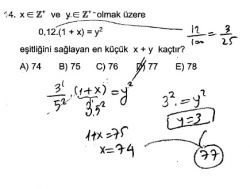 14. x ∈ Z⁺ ve y ∈ Z⁺ olmak üzere
0,12.(1 + x) = y²
12/100 = 3/25
eşitliğini sağlayan en küçük x + y kaçtır?
A) 74 B) 75 C) 76 D) 77 E) 78
3¹/5² . (1+x) = y²
3.5²
3² = y²
y = 3
1+x = 75
x = 74
77